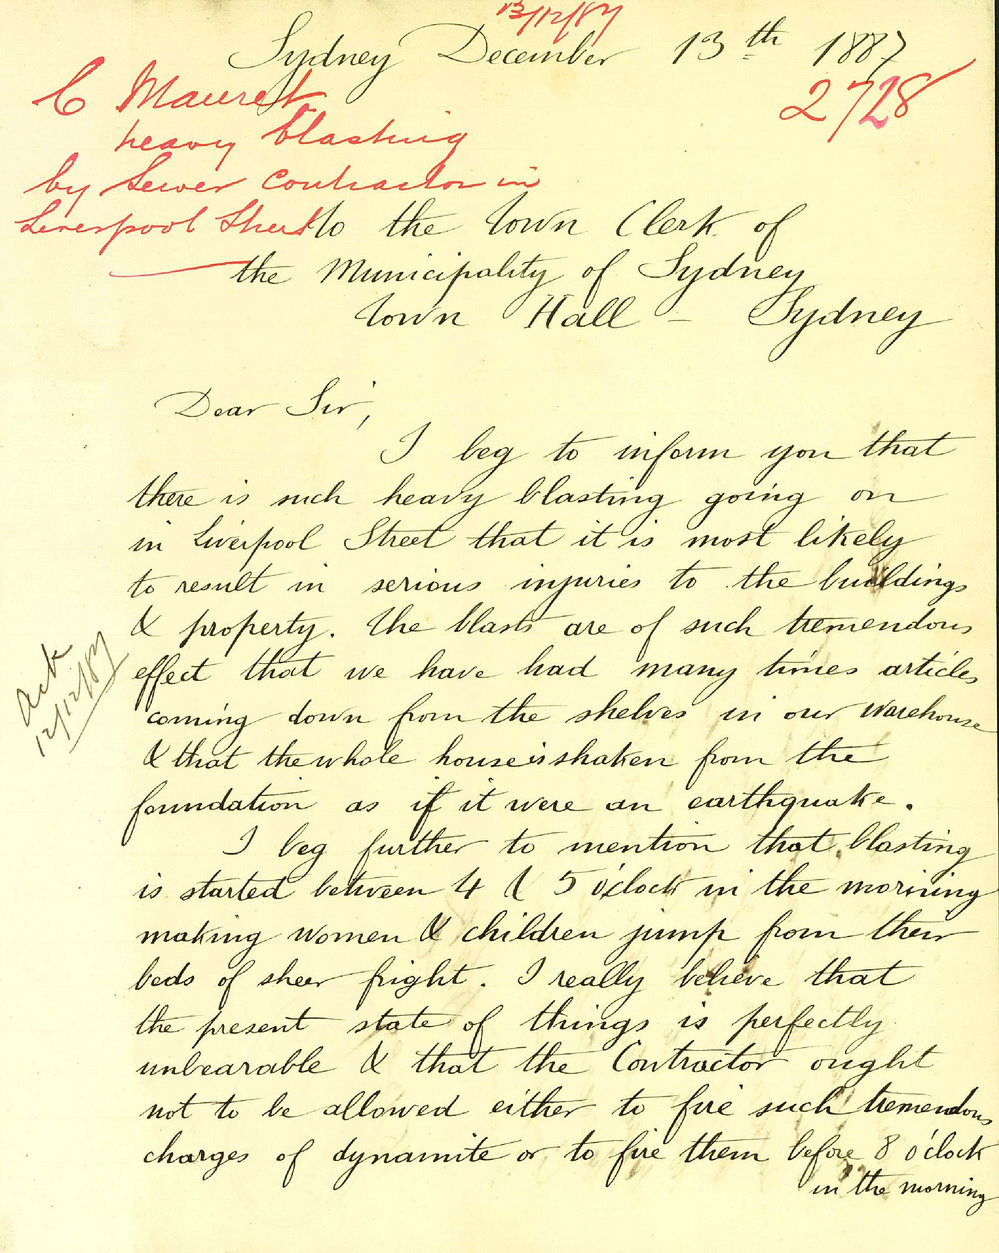 13/12/87
Sydney December 13th 1887
2728
C Mauret
heavy blasting
by Sewer Contractor in
Liverpool Street
To the Town Clerk of
the Municipality of Sydney
Town Hall - Sydney
Dear Sir,
I beg to inform you that
there is such heavy blasting going on
in Liverpool Street that it is most likely
to result in serious injuries to the buildings
& property. The blasts are of such tremendous
effect that we have had many times articles
coming down from the shelves in our Warehouse
& that the whole house is shaken from the
foundation as if it were an earthquake.
I beg further to mention that blasting
is started between 4 & 5 o'clock in the morining
making women & children jump from their
beds of sheer fright. I really believe that
the present state of things is perfectly
unbearable & that the Contractor ought
not to be allowed either to fire such tremendous
charges of dynamite or to fire them before 8 o'clock
in the morning
Ack
12/12/87